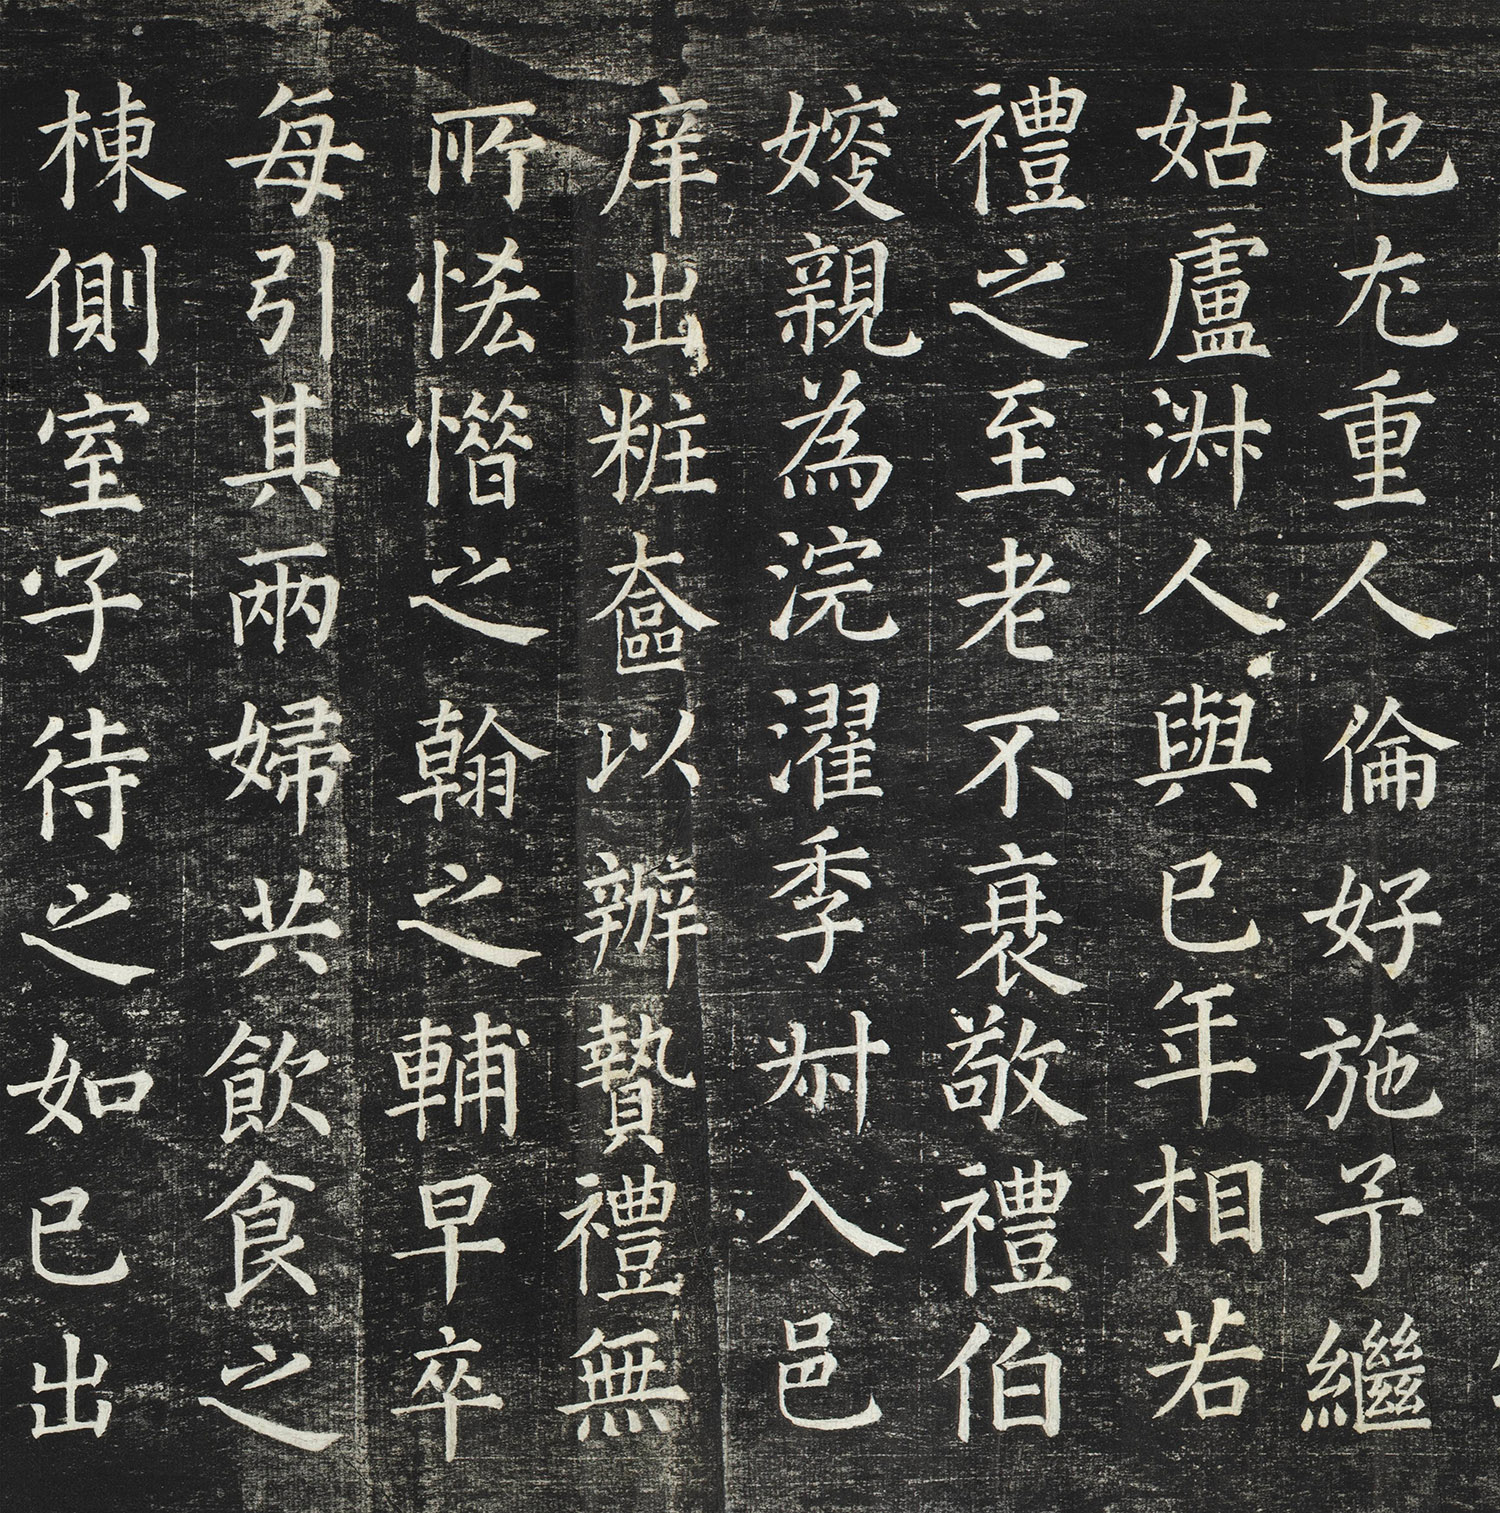 也尤重人倫好施予繼
姑盧淑人與已年相若
禮之至老不衰敬禮伯
嫂親為浣濯季叔入邑
庠出粧奩以辦贄禮無
所恡惜之翰之輔早卒
每引其兩婦共飲食之
棟側室子待之如已出